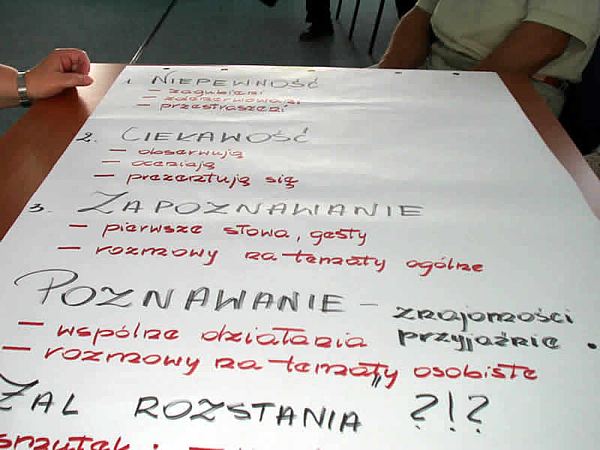 1. NIEPEWNOŚĆ
– zagubieni
– zdenerwowani
– przestraszeni
2. CIEKAWOŚĆ
– obserwują
– oceniają
– prezentują się
3. ZAPOZNAWANIE
– pierwsze słowa, gesty
– rozmowy na tematy ogólne
POZNAWANIE – znajomości
– wspólne działania przyjaźnie.
– rozmowy na tematy „osobiste
ŻAL ROZSTANIA ?!?